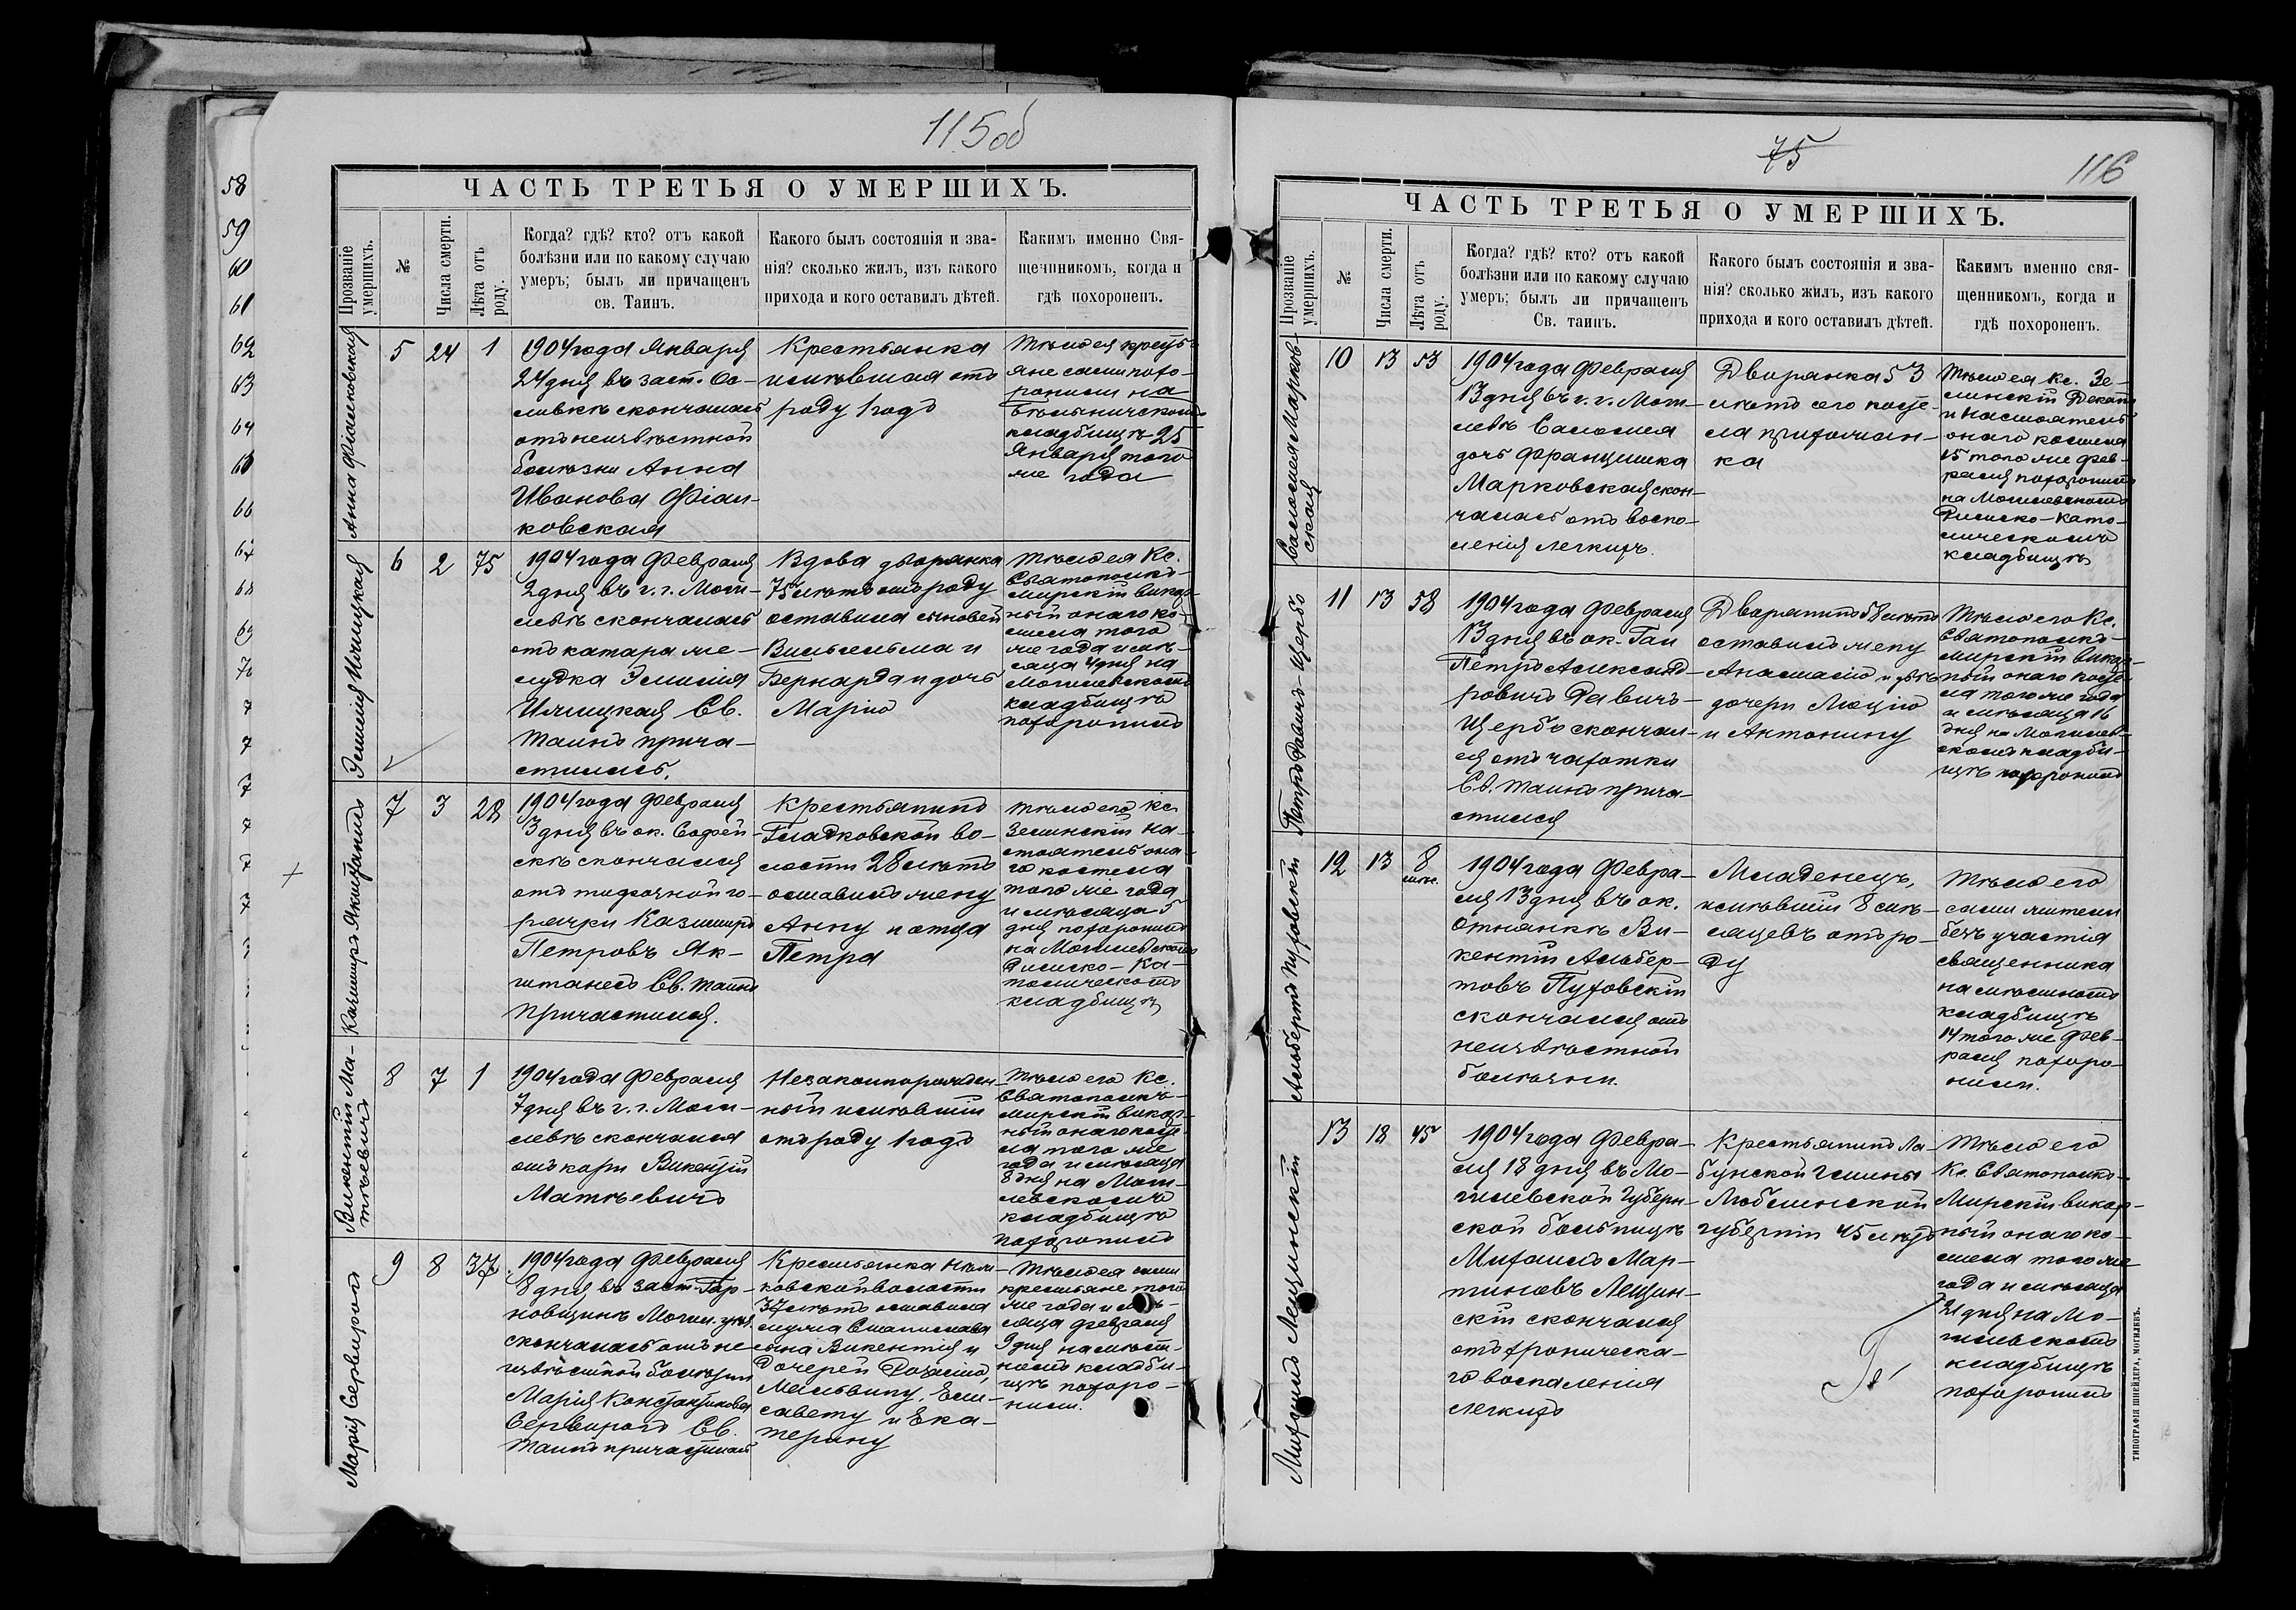 115об
ЧАСТЬ ТРЕТЬЯ О УМЕРШИХЪ.
Прозваніе умершихъ.
№
Числа смерти.
Лѣта отъ роду.
Когда? гдѣ? кто? отъ какой
болѣзни или по какому случаю
умеръ; былъ ли причащенъ
св. Таинъ.
Какого былъ состоянія и зва-
нія? сколько жилъ, изъ какого
прихода и кого оставилъ дѣтей.
Какимъ именно Свя-
щенникомъ, когда и
гдѣ похороненъ.
Анна Фіалковская
5
24
1
1904 года Января
24 дня въ заст. Со-
ловкѣ скончалась
отъ неизвѣстной
болѣзни Анна
Иванова Фіал-
ковская
Крестьянка
имѣвшая отъ
роду 1 годъ
Тѣло ея кресть
яне сами похо-
ронили на
Бѣлыничскомъ
кладбищѣ 25
Января того
же года
Эмилія Илицкая
6
2
75
1904 года Февраля
2 дня въ г. г. Моги-
левѣ скончалась
отъ катара же-
лудка Эмилія
Илицкая Св.
Таинъ прича-
стилась.
Вдова дворянка
75 лѣтъ отъ роду
оставила сыновей
Вильгельма и
Бернарда и дочь
Марію
Тѣло ея Кс.
Святополкъ-
Мирскій викар-
ный онаго ко-
стела того
же года и мѣ-
сяца 4 дня на
Могилевскомъ
кладбищѣ
похоронилъ
Казимиръ Якштанъ
7
3
28
1904 года Февраля
3 дня въ ок. Софей-
скѣ скончался
отъ тифозной го-
рячки Казимиръ
Петровъ Як-
штанъ Св. Таинъ
причастился.
Крестьянинъ
Гладковской во-
лости 28 лѣтъ
оставилъ жену
Анну и отца
Петра
Тѣло его Кс.
Зелинскій На-
стоятель она-
го костела
того же года
и мѣсяца 5
дня похоронилъ
на Могилевскомъ
Римско-Ка-
толическомъ
кладбищѣ
Викентій Ма-
тѣевичъ
8
7
1
1904 года Февраля
7 дня въ г. г. Моги-
левѣ скончался
отъ кори Викентій
Матѣевичъ
Незаконнорожден-
ный имѣвшій
отъ роду 1 годъ
Тѣло его Кс.
Святополкъ-
Мирскій викар-
ный онаго косте-
ла того же
года и мѣсяца
8 дня на Моги-
левскомъ
кладбищѣ
похоронилъ
Марія Сервирогъ
9
8
37
1904 года Февраля
8 дня въ заст. Тар-
новщинѣ Могил. уѣз.
скончалась отъ не
извѣстной болѣзни
Марія Константинова
Сервирогъ Св.
Таинъ причастилась
Крестьянка
ковской волости
37 лѣтъ оставила
мужа Станислава
сына Викентія и
дочерей Розалію,
Мальвину, Ели-
савету и Ека-
терину
Тѣло ея сами
крестьяне того
же года и мѣ-
сяца февраля
9 дня на мѣст-
номъ кладби-
щѣ похоро-
нили.
58
59
60
61
62
63
64
65
66
67
68
69
70
7
7
7
7
7
7
75
116
ЧАСТЬ ТРЕТЬЯ О УМЕРШИХЪ.
Прозваніе умершихъ.
№
Числа смерти.
Лѣта отъ роду.
Когда? гдѣ? кто? отъ какой
болѣзни или по какому случаю
умеръ; былъ ли причащенъ
Св. таинъ.
Какого былъ состоянія и зва-
нія? сколько жилъ, изъ какого
прихода и кого оставилъ дѣтей.
Какимъ именно свя-
щенникомъ, когда и
гдѣ похороненъ.
Саломея Марков-
ская
10
13
53
1904 года Февраля
13 дня въ г. г. Моги-
левѣ Саломея
дочь Францишка
Марковская скон-
чалась отъ воспа-
ленія легкихъ.
Дворянка 53
лѣтъ сего косте-
ла прихожан-
ка
Тѣло ея Кс. Зе-
линскій Деканъ
и Настоятель
онаго костела
15 того же Фев-
раля похоронилъ
на Могилевскомъ
Римско-Като-
лическомъ
кладбищѣ
Петръ Давичъ-Щербо
11
13
58
1904 года Февраля
13 дня въ ок. Гаи
Петръ Александ-
ровичъ Давичъ-
Щербо скончал-
ся отъ чахотки
Св. Таинъ прича-
стился
Дворянинъ 58 лѣтъ
оставилъ жену
Анастасію и двѣ
дочери Люцію
и Антонину
Тѣло его Кс.
Святополкъ-
Мирскій викар-
ный онаго косте-
ла того же года
и мѣсяца 16
дня на Могилев-
скомъ кладби-
щѣ похоронилъ
Альбертъ Пуховскій
12
13
8
мѣс.
1904 года Февра-
ля 13 дня въ ок.
Отнянкѣ Ви-
кентій Альбер-
товъ Пуховскій
скончался отъ
неизвѣстной
болѣзни.
Младенецъ,
имѣвшій 8 мѣ-
сяцевъ отъ ро-
ду
Тѣло его
сами жители
безъ участія
священника
на мѣстномъ
кладбищѣ
14 того же Фев-
раля похоро-
нили.
Михаилъ Лещинскій
13
18
45
1904 года Февра-
ля 18 дня въ Мо-
гилевской Губерн-
ской больницѣ
Михаилъ Мар-
тиновъ Лещин-
скій скончался
отъ хроническа-
го воспаленія
легкихъ
Крестьянинъ Ла-
бунской Гмины
Люблинской
губерніи 45 лѣтъ
Тѣло его
Кс. Святополкъ-
Мирскій викар-
ный онаго ко-
стела того же
года и мѣсяца
21 дня на Мо-
гилевскомъ
кладбищѣ
похоронилъ
ТИПОГРАФІЯ ШНЕЙДЕРА, МОГИЛЕВЪ.